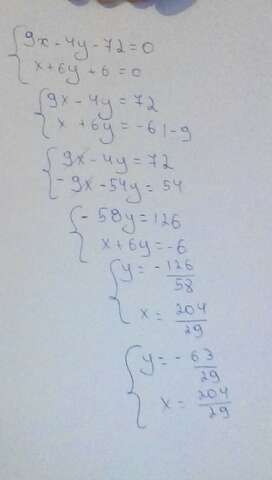 9x - 4y - 72 = 0
x + 6y + 6 = 0
9x - 4y = 72
x + 6y = -6 | -9
9x - 4y = 72
-9x - 54y = 54
- 58y = 126
x + 6y = -6
y = - 126/58
x = 204/29
y = - 63/29
x = 204/29